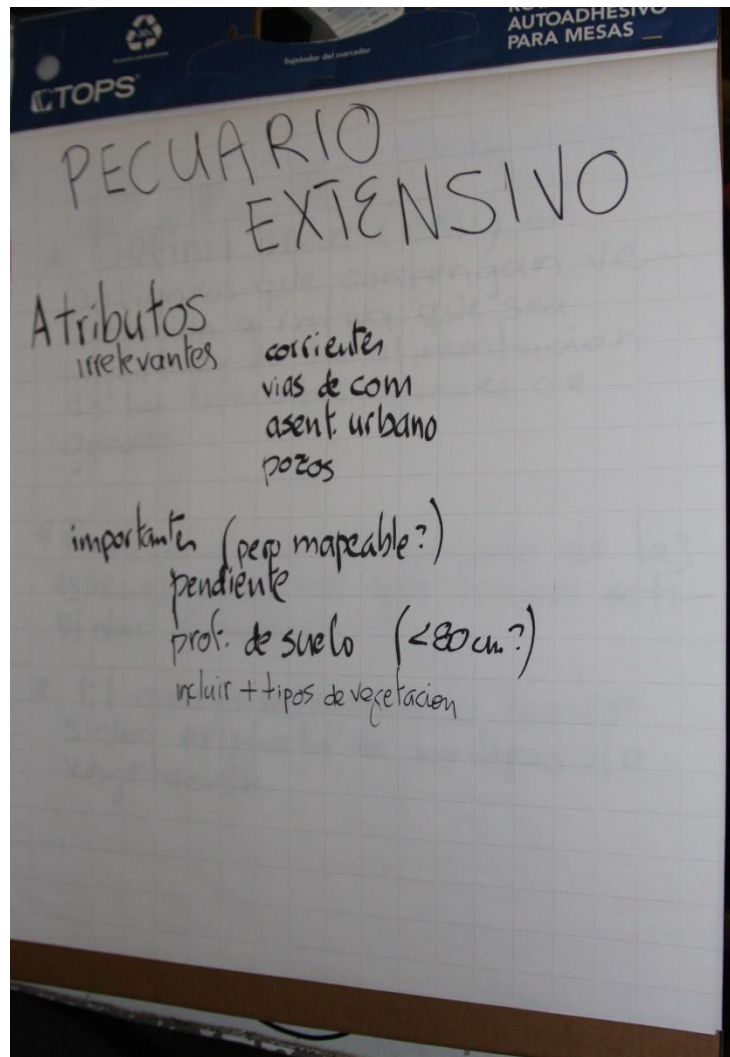 AUTOADHESIVO
PARA MESAS
Sujetador del marcador
TOPS
PECUARIO
EXTENSIVO
Atributos
irrelevantes corrientes
vias de com
asent. urbano
pozos
importantes (pero mapeable?)
pendiente
prof. de suelo (<80 cm?)
incluir + tipos de vegetacion